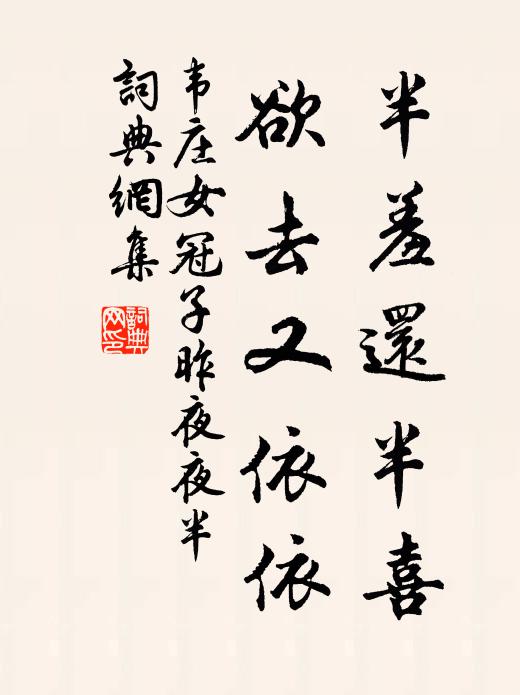 半羞還半喜
欲去又依依
韦庄女冠子昨夜夜半
詞典網集
詞典网印